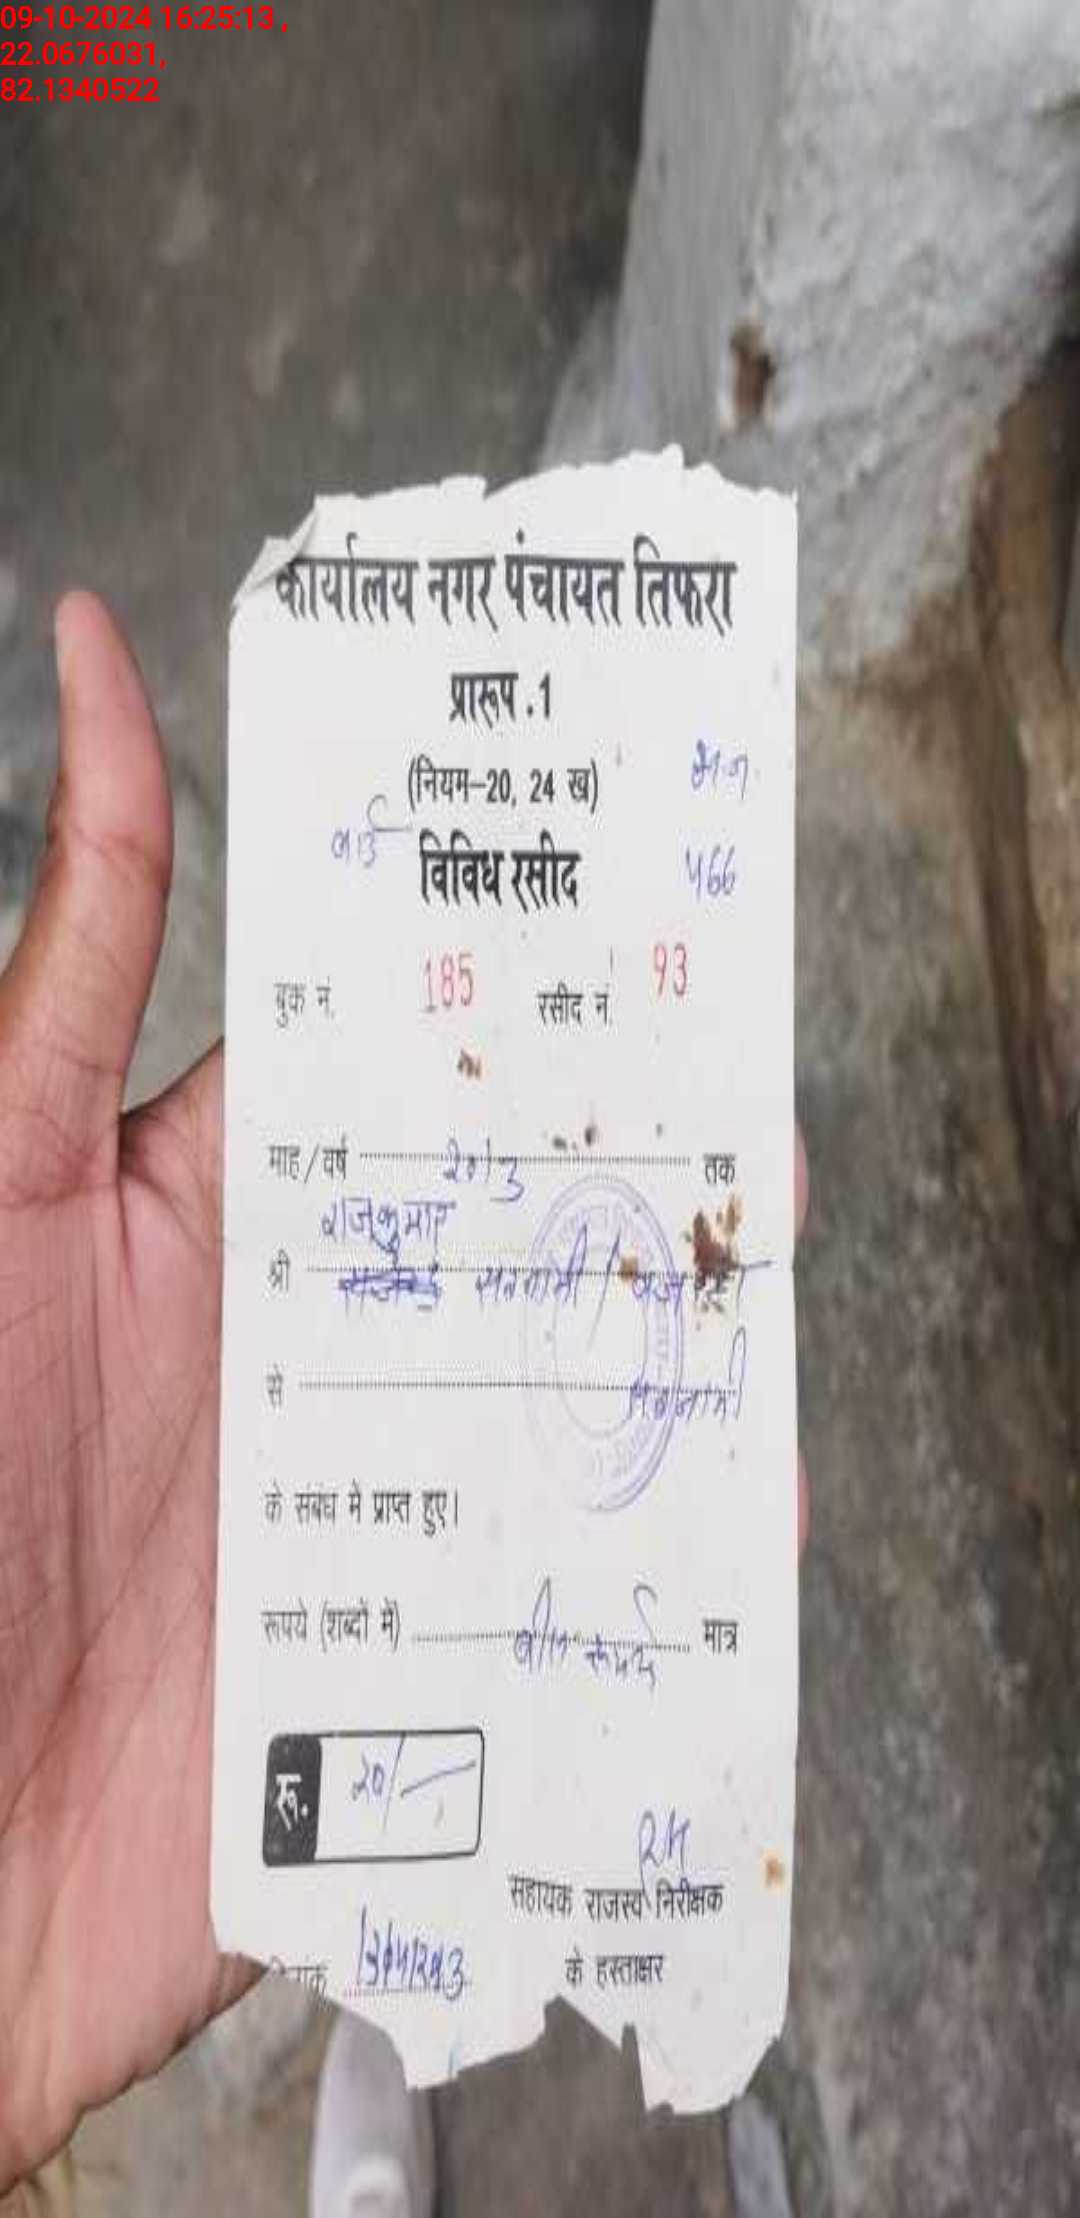 09-10-2024 16:25:13 ,
22.0676031,
82.1340522
कार्यालय नगर पंचायत तिफरा
प्रारूप .1
(नियम-20, 24 ख)
विविध रसीद
बुक नं. 185 रसीद नं. 93
माह / वर्ष 2013 तक
राजकुमार
श्री सतनामी /
से
के संबंध मे प्राप्त हुए।
रूपये (शब्दों में) बीस रूपये मात्र
रू. २०/-
सहायक राजस्व निरीक्षक
के हस्ताक्षर